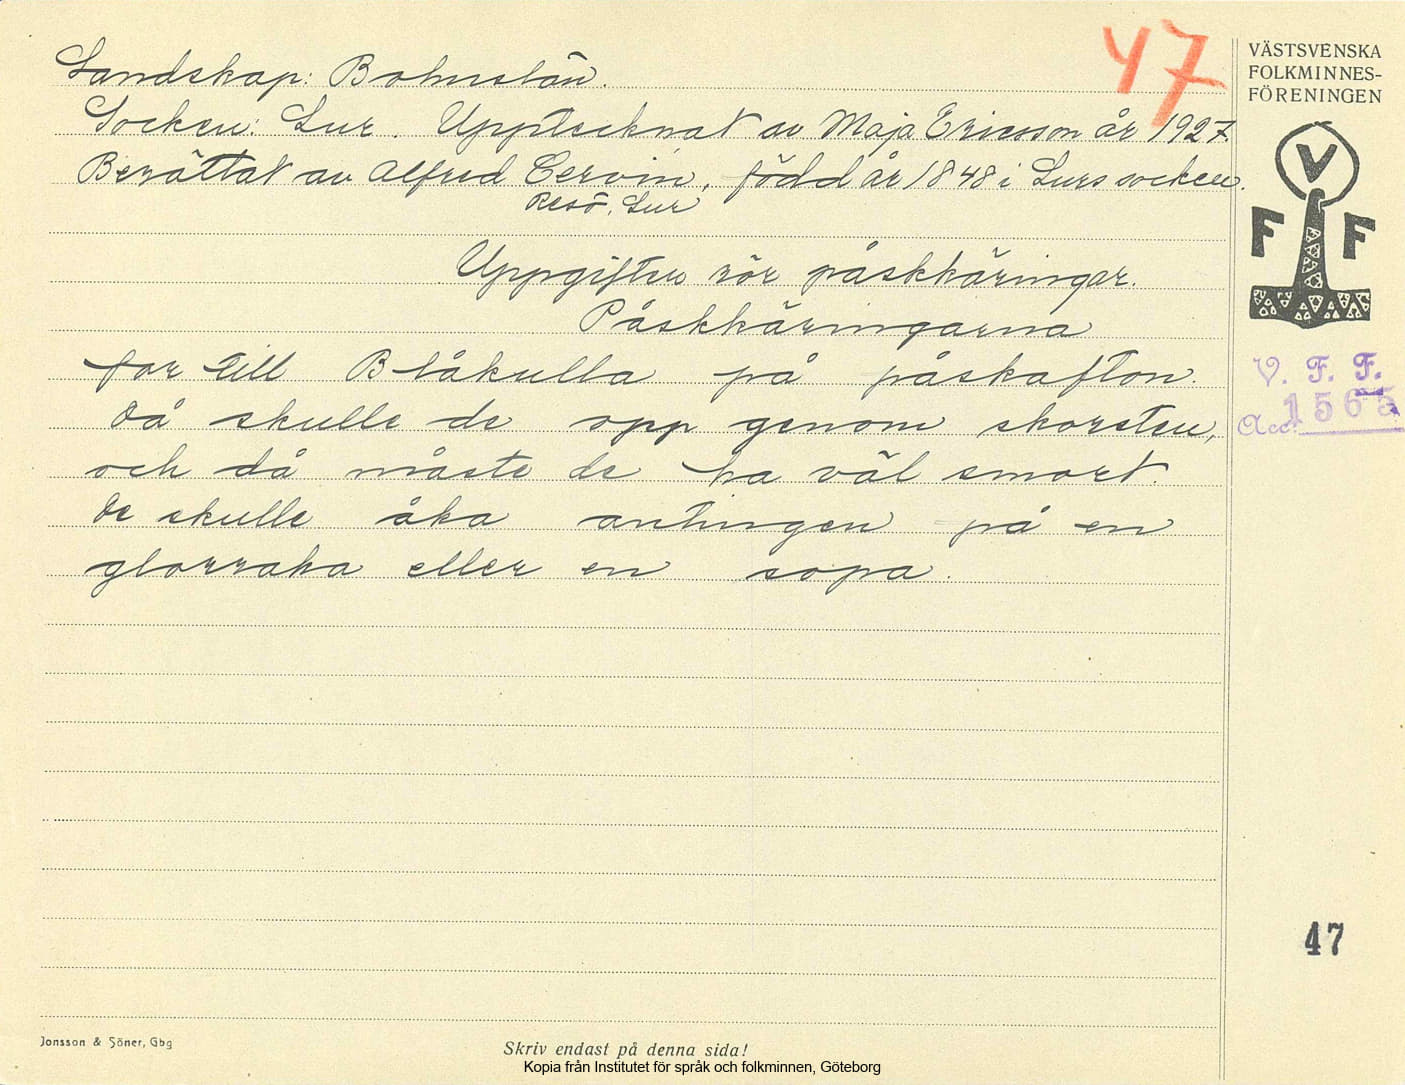 47
VÄSTSVENSKA
FOLKMINNES-
FÖRENINGEN
V
F F
V. F. F.
Acc. 1565
Landskap: Bohuslän.
Socken: Lur. Upptecknat av Maja Ericsson år 1927.
Berättat av Alfred Cervin, född år 1848 i Lurs socken.
Resö, Lur
Uppgiften rör påskkäringar.
Påskkäringarna
for till Blåkulla på påskafton.
Då skulle de opp genom skorsten,
och då måste de ha väl smort.
De skulle åka antingen på en
glorraka eller en sopa.
47
Jonsson & Söner, Gbg
Skriv endast på denna sida!
Kopia från Institutet för språk och folkminnen, Göteborg